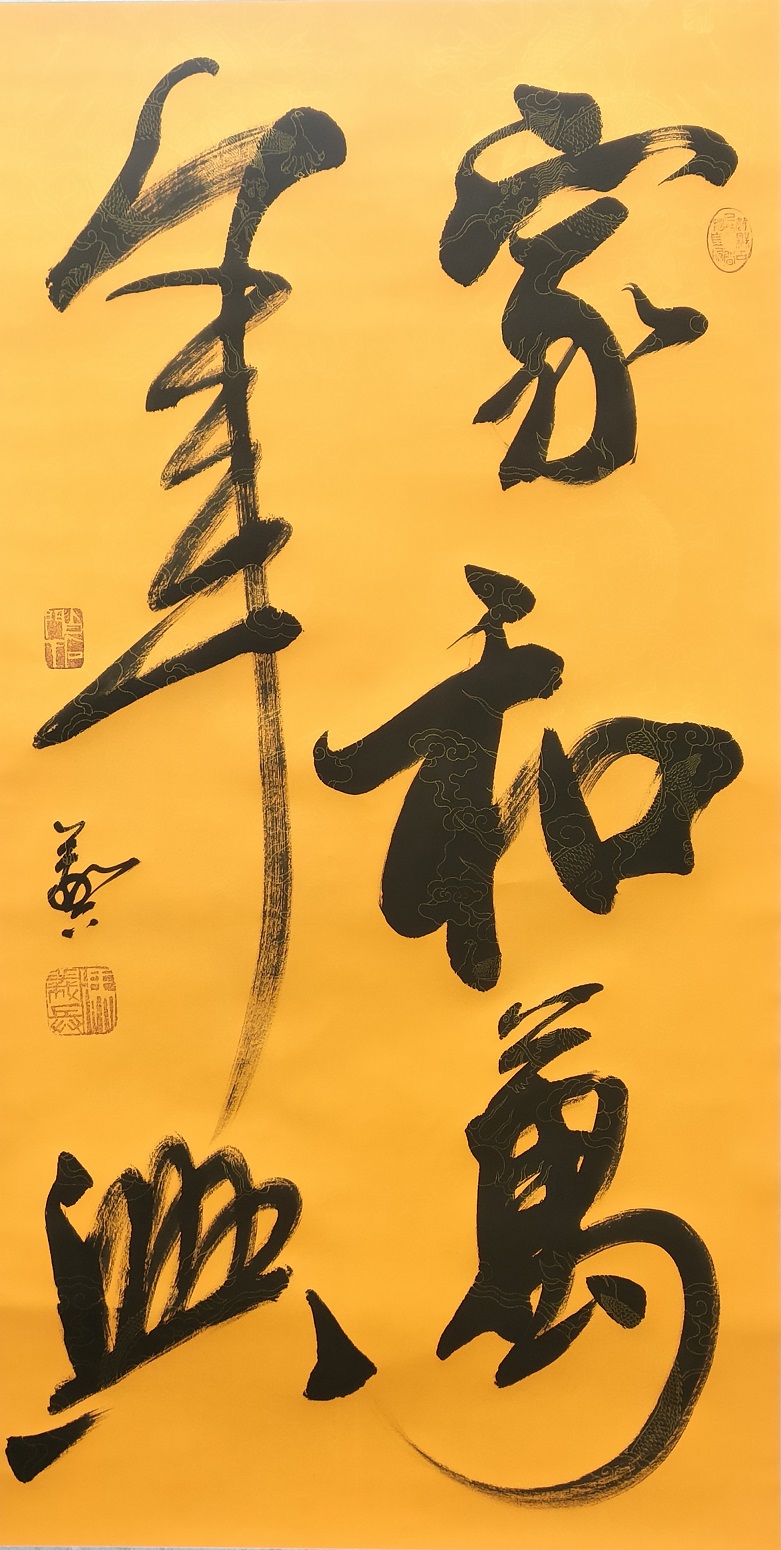 家和萬
事興